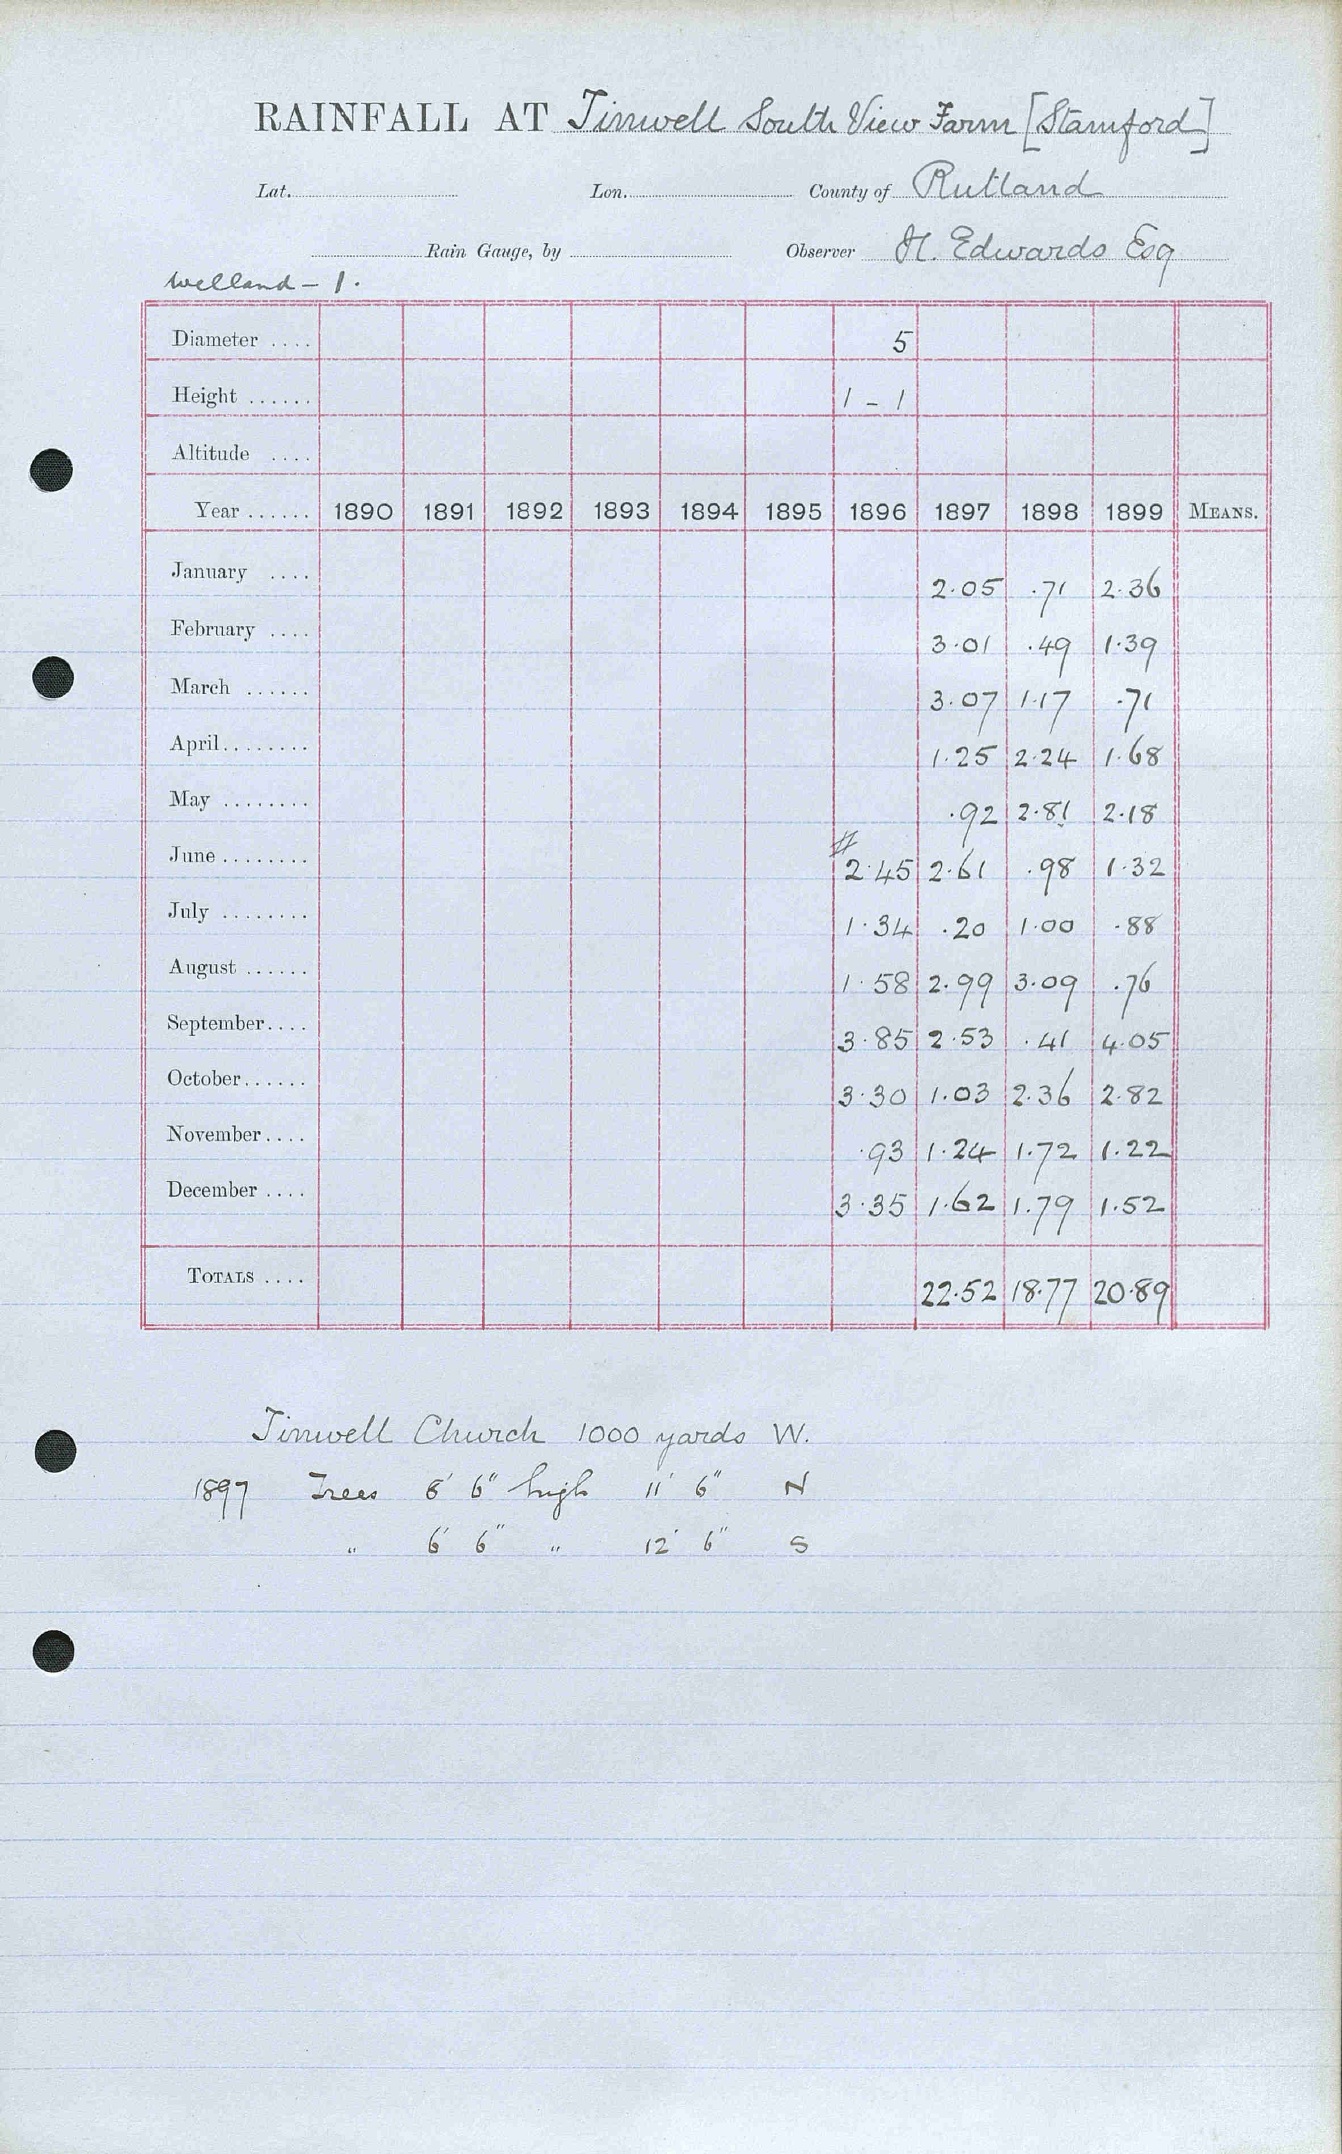 RAINFALL AT Tinwell South View Farm [Stamford]
Lat. Lon. County of Rutland
Rain Gauge, by Observer H. Edwards Esq
Welland - 1.
Diameter .... 5
Height ...... 1 - 1
Altitude ....
Year ...... 1890 1891 1892 1893 1894 1895 1896 1897 1898 1899 MEANS.
January .... 2.05 .71 2.36
February .... 3.01 .49 1.39
March ...... 3.07 1.17 .71
April........ 1.25 2.24 1.68
May ........ .92 2.81 2.18
June ........ # 2.45 2.61 .98 1.32
July ........ 1.34 .20 1.00 .88
August ...... 1.58 2.99 3.09 .76
September.... 3.85 2.53 .41 4.05
October...... 3.30 1.03 2.36 2.82
November.... .93 1.24 1.72 1.22
December .... 3.35 1.62 1.79 1.52
TOTALS .... 22.52 18.77 20.89
Tinwell Church 1000 yards W.
1897 Trees 8' 6" high 11' 6" N
" 6' 6" " 12' 6" S